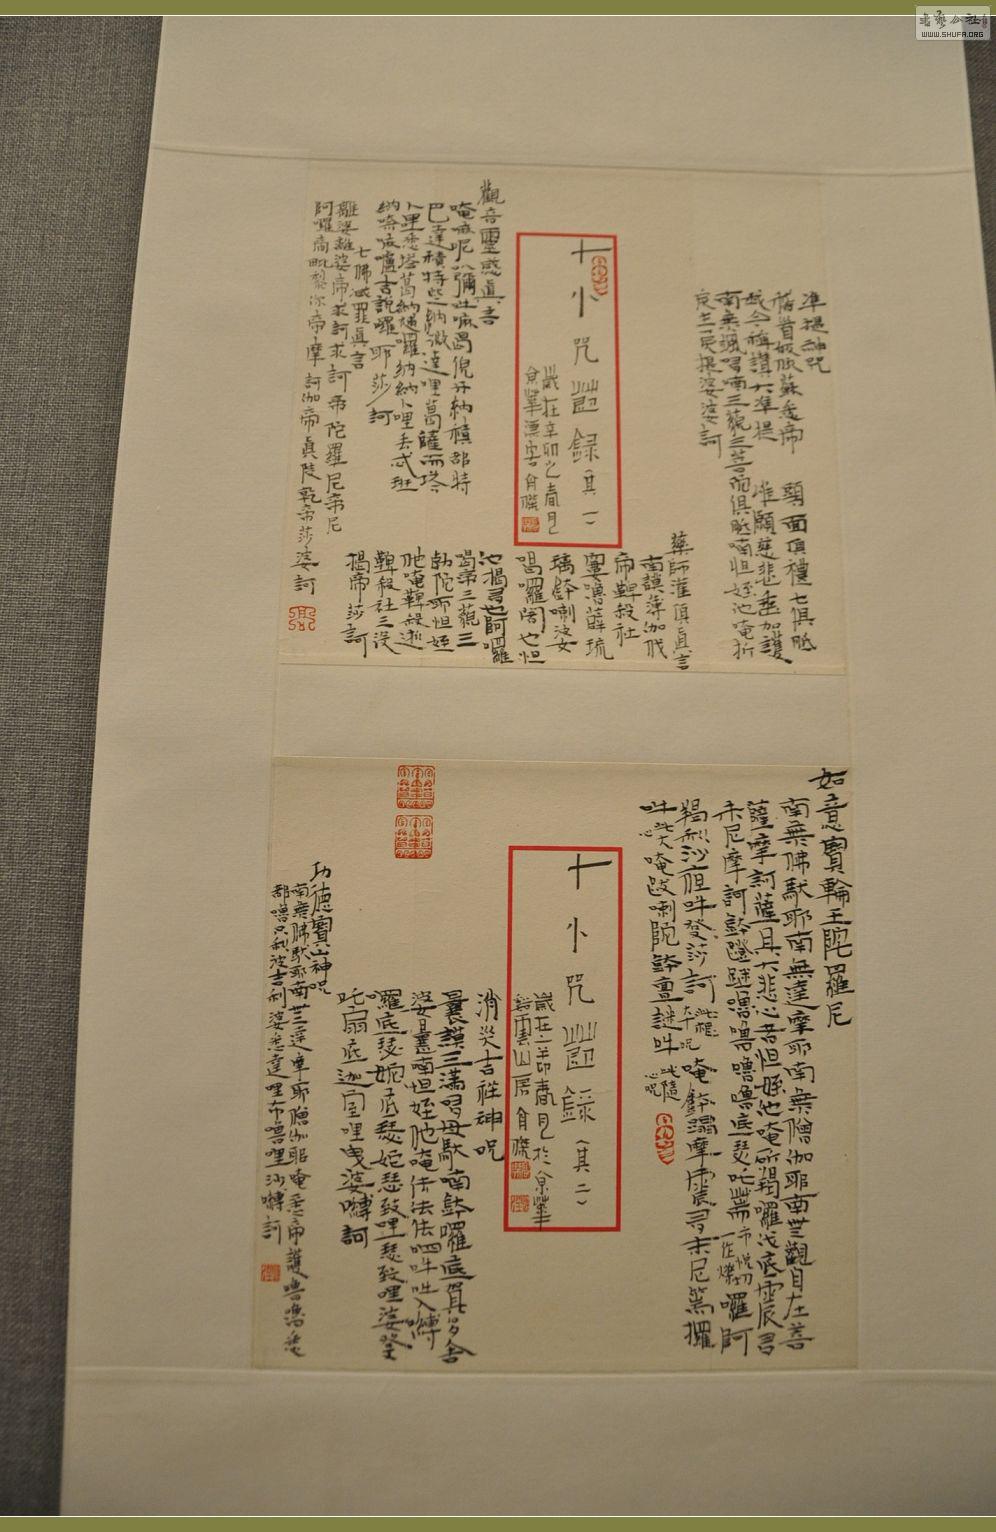 准提神咒
稽首皈依蘇悉帝 頭面頂禮七俱胝
我今稱讚大准提 唯願慈悲垂加護
南無颯哆喃三藐三菩陀俱胝喃怛姪他唵折
戾主戾準提娑婆訶
藥師灌頂真言
南謨薄伽伐
帝鞞殺社
窶嚕薜琉
璃鉢喇婆
喝囉闍也怛
他揭多也阿囉
喝帝三藐三
勃陀耶怛姪
他唵鞞殺逝
鞞殺社三沒
揭帝莎訶
十小咒茝錄 其一
歲在辛卯之春月
觀音靈感真言
唵嘛呢叭彌吽嘛曷倪牙納積都特
巴達積特些納微達哩葛薩而塔
卜里悉塔葛納補囉納納卜哩丟忒班
納嗱麻嚧吉說囉耶莎訶
七佛滅罪真言
離婆離婆帝求訶求訶帝陀羅尼帝尼
訶囉帝毗黎你帝摩訶伽帝真陵乾帝莎婆訶
如意寶輪王陀羅尼
南無佛馱耶南無達摩耶南無僧伽耶南無觀自在菩
薩摩訶薩具大悲心者怛姪他唵斫羯囉伐底震多
末尼摩訶鉢蹬謎嚕嚕嚕嚕底瑟吒篅囉阿
羯利沙夜吽發莎訶 唵鉢蹋摩震多末尼篤攞
吽 唵跋喇陀鉢亶謎吽
十小咒茝錄 其二
消災吉祥神咒
曩謨三滿哆母馱喃鉢囉底賀多舍
娑曩喃怛姪他唵佉佉佉呬吽吽入嚩
囉底瑟姹底瑟姹瑟致哩瑟致哩娑登
吒扇底迦室哩曳娑嚩訶
功德寶山神咒
南無佛馱耶南無達摩耶南無僧伽耶唵悉帝護嚕嚕悉
都嚕只利波吉利婆悉達哩布嚕哩沙嚩訶
WWW.SHUFA.ORG